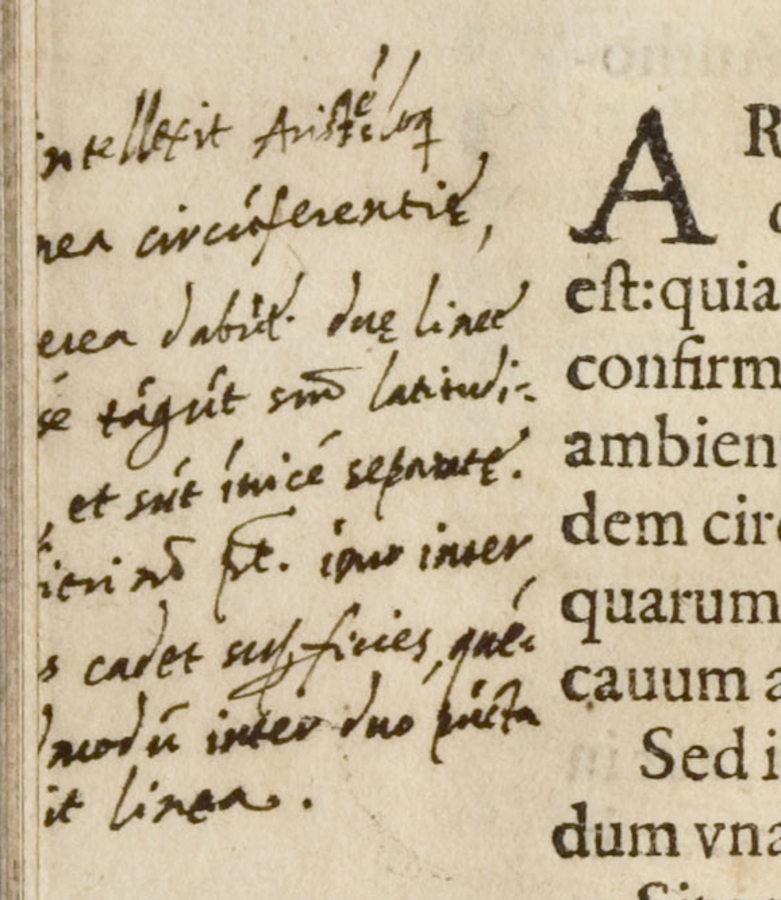 intellexit Aristé. loq
nea circúferentię,
erea dabít. duę lineę
sé tágút sm̃ latitudi-
et sút ínicé separatę.
pt. inter
s cadet supficies, qué
modũ inter duo púcta
it linea.
A R
est: quia
confirm
ambien
dem circ
quarum
cauum a
Sed i
dum vna